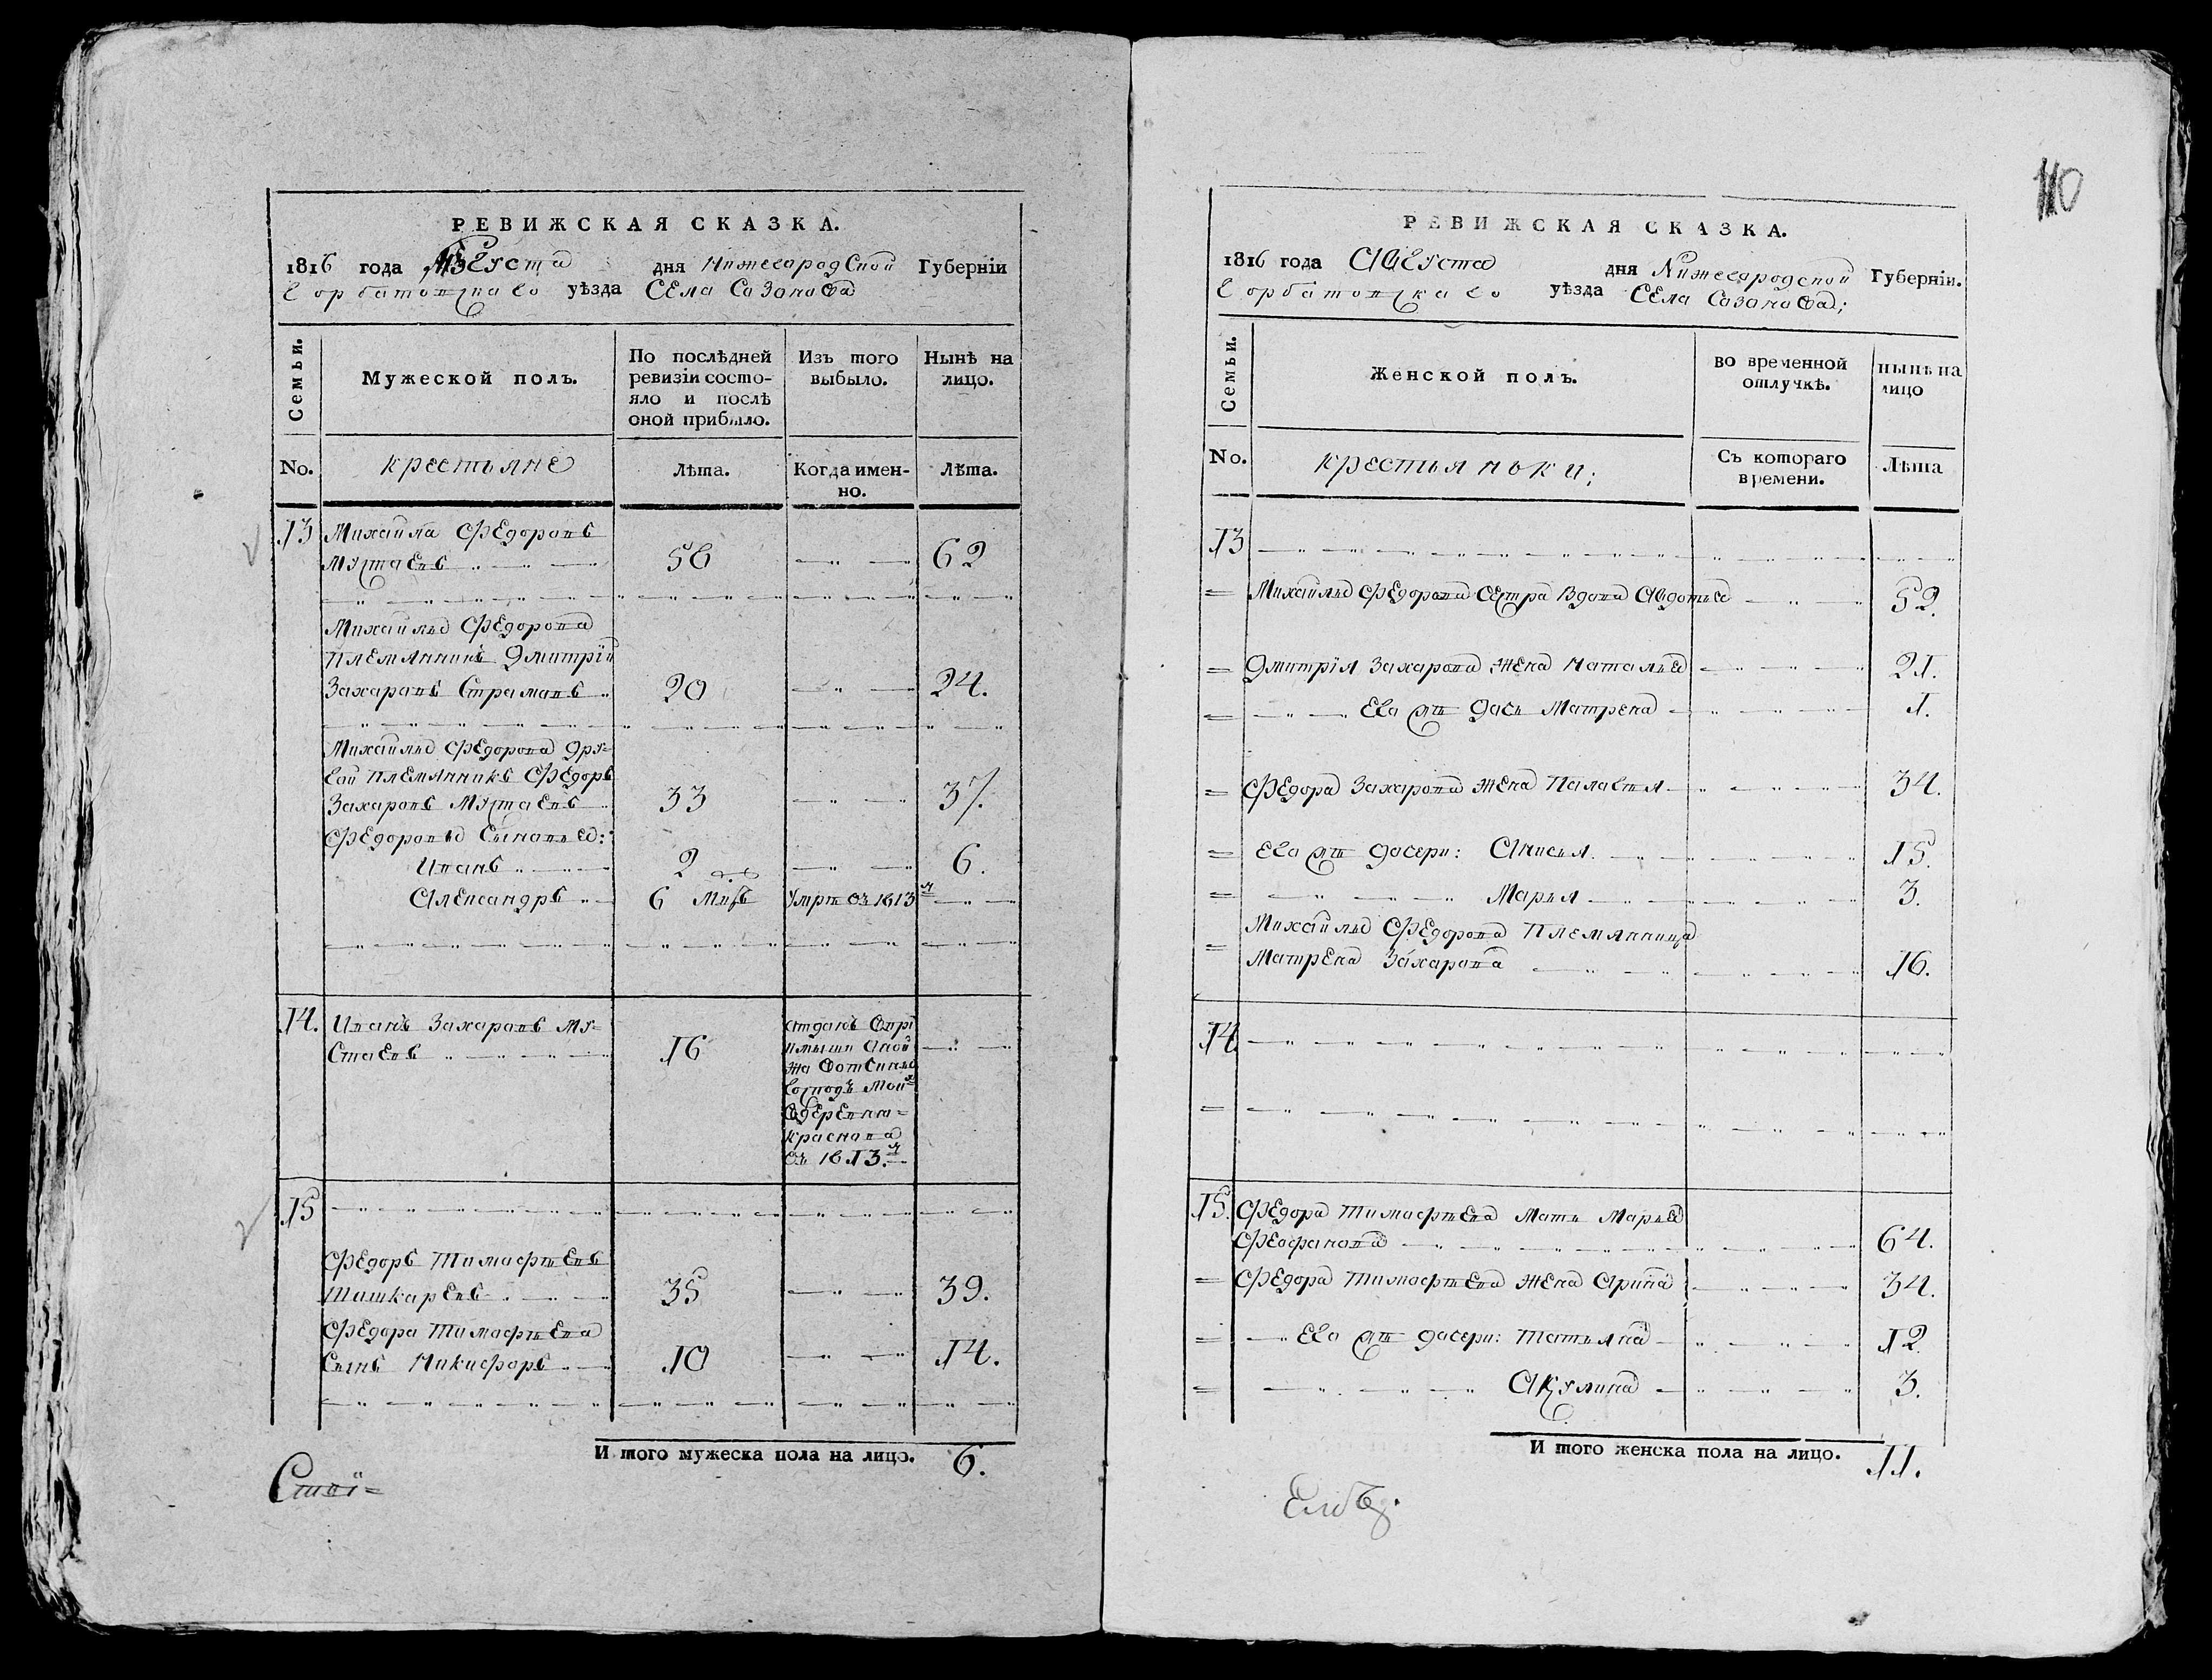 РЕВИЖСКАЯ СКАЗКА.
1816 года Августа дня Нижегородской Губерніи
Горбатовскаго уѣзда Села Сазонова
Семьи.
Мужеской полъ.
По послѣдней ревизіи состо-
яло и послѣ
оной прибыло.
Изъ того
выбыло.
Нынѣ на
лицо.
No.
крестьяне
Лѣта.
Когда имен-
но.
Лѣта.
13 Михайла Федоровъ
Мустаевъ 58 62
Михайлы Федорова
племянникъ Дмитрій
Захаровъ 20 24.
Михайлы Федорова дру-
гой племянникъ Федоръ
Захаровъ Мустаевъ 33 37.
Федоровы сыновья:
Иванъ 2 6.
Александръ 6 умре въ 1813
14. Иванъ Захаровъ Му-
стаевъ 16
отданъ
господъ
деревни
Краснова
въ 1813.
15
Федоръ Тимофеевъ
Тишкаревъ 35 39.
Федора Тимофеева
сынъ Никифоръ 10 14.
И того мужеска пола на лицо. 6.
110
РЕВИЖСКАЯ СКАЗКА.
1816 года Августа дня Нижегородской Губерніи.
Горбатовскаго уѣзда Села Сазонова;
Семьи.
Женской полъ.
во временной
отлучкѣ.
нынѣ на
лицо
No.
крестьяньки;
Съ котораго
времени.
Лѣта
13
Михайлы Федорова сестра вдова Авдотья 52.
Дмитрія Захарова жена Наталья 21.
Его же дочь Матрена 1.
Федора Захарова жена Палагея 34.
Его же дочери: Анисья 15.
Марья 3.
Михайлы Федорова племянница
Матрена Захарова 16.
14.
15. Федора Тимофеева мать Марья
Феофанова 64.
Федора Тимофеева жена Арина 34.
Его же дочери: Татьяна 12
Акулина 3.
И того женска пола на лицо. 11.